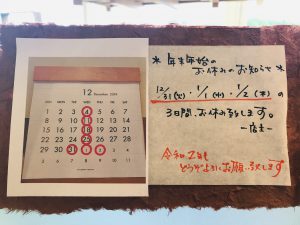 12 December 2019
SUN MON TUE WED THU FRI SAT
1 2 3 4 5 6 7
8 9 10 11 12 13 14
15 16 17 18 19 20 21
22 23 24 25 26 27 28
29 30 31 1 2 3 4
* 年末年始の
お休みのお知らせ *
12/31(火)・1/1(水)・1/2(木)の
3日間、お休み致します。
ー店主ー
令和2年も
どうぞよろしくお願い致します